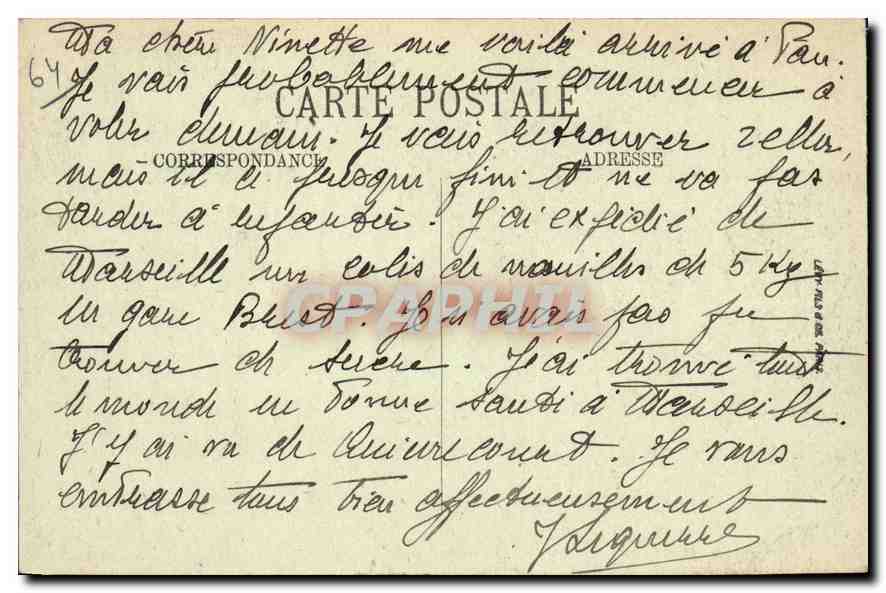 Ma chère Ninette me voilà arrivé à Pau.
64
Je vais probablement commencer à
CARTE POSTALE
voler demain. Je vais retrouver
CORRESPONDANCE
ADRESSE
mais il a presque fini et ne va pas
tarder à . J'ai expédié de
Marseille un colis de nouilles de 5 Kg
LÉVY FILS & CIE PARIS
en gare Brest. Je n'avais pas pu
CPAPHIL
trouver de sucre. J'ai trouvé tout
le monde en bonne santé à Marseille.
J'y ai vu de . Je vous
embrasse tous bien affectueusement